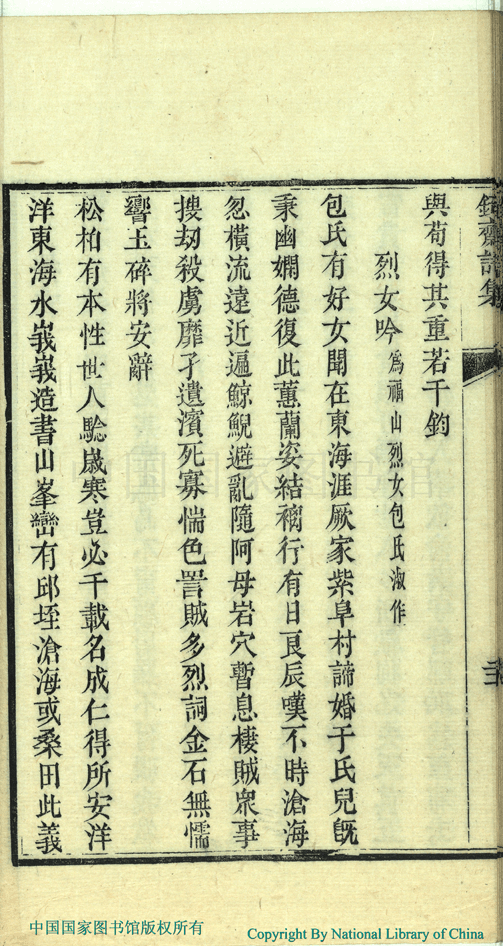 與荀得其重若千鈞
烈女吟 為福山烈女包氏淑作
包氏有好女聞在東海涯厥家紫阜村諦婚于氏兒旣
秉幽嫻德復此蕙蘭姿結褵行有日良辰嘆不時滄海
忽橫流遠近逼鯨鯢避亂隨阿母岩穴暫息棲賊眾事
搜劫殺虜靡孑遺濱死寡惴色詈賊多烈詞金石無懦
響玉碎將安辭
松柏有本性世人驗歲寒豈必千載名成仁得所安洋
洋東海水峩峩造書山峯巒有邱垤滄海或桑田此義
中国国家图书馆版权所有
Copyright By National Library of China